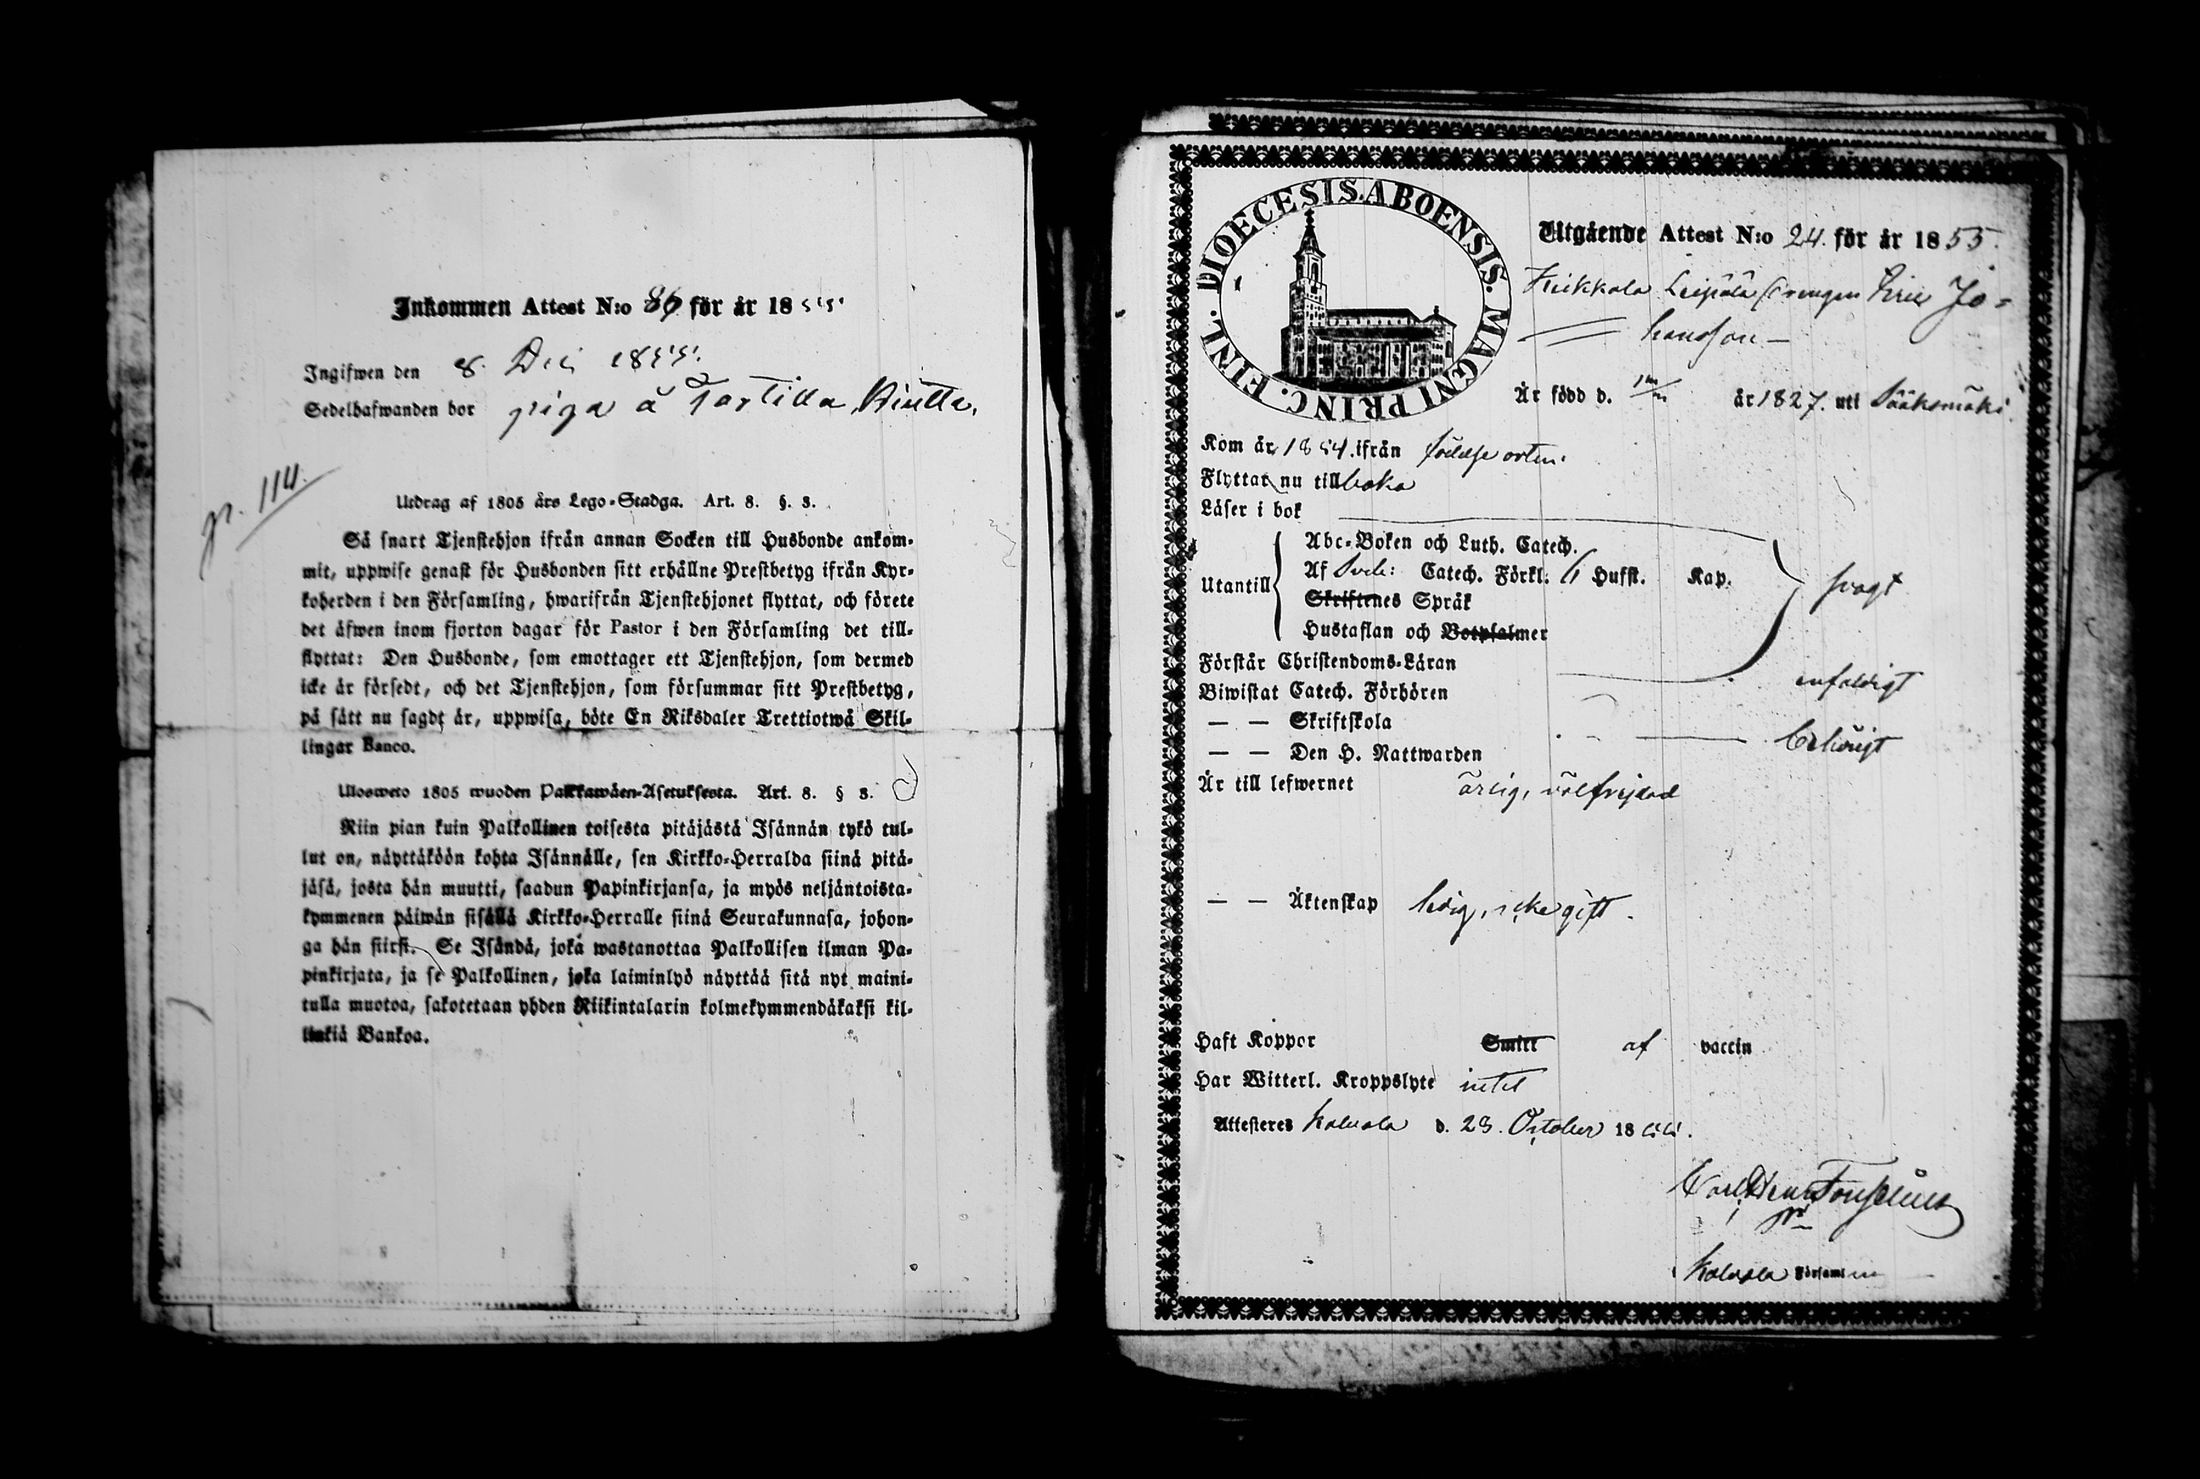 Inkommen Attest N:o 86 för år 1855
Ingifwen den 8. Dec 1855.
Sedelhafwanden bor piga å Tartila
p. 114.
Utdrag af 1805 års Lego-Stadga. Art. 8. §. 3.
Så snart Tjenstehjon ifrån annan Socken till Husbonde ankom-
mit, uppwise genast för Husbonden sitt erhållne Prestbetyg ifrån Kyr-
koherden i den Församling, hwarifrån Tjenstehjonet flyttat, och förete
det äfwen inom fjorton dagar för Pastor i den Församling det till-
flyttat: Den Husbonde, som emottager ett Tjenstehjon, som dermed
icke är försedt, och det Tjenstehjon, som försummar sitt Prestbetyg,
på sätt nu sagdt är, uppwisa, böte En Riksdaler Trettiotwå Skil-
lingar Banco.
Ulosweto 1805 wuoden Palkkawäen-Asetuksesta. Art. 8. § 3.
Niin pian kuin Palkollinen toisesta pitäjästä Isännän tykö tul-
lut on, näyttäköön kohta Isännälle, sen Kirkko-Herralda siinä pitä-
jäsä, josta hän muutti, saadun Papinkirjansa, ja myös neljäntoista-
kymmenen päiwän sisällä Kirkko-Herralle siinä Seurakunnasa, johon-
ga hän siirsi. Se Isändä, joka wastanottaa Palkollisen ilman Pa-
pinkirjata, ja se Palkollinen, joka laiminlyö näyttää sitä nyt maini-
tulla muotoa, sakotetaan yhden Riikintalarin kolmekymmendäkaksi kil-
linkiä Bankoa.
DIOECESIS. ABOENSIS. MAGNI PRINC. FINL.
Utgående Attest N:o 24. för år 1855.
Leipälä drengen Eric Jo-
hansson
Är född d. år 1827. uti Sääksmäki
Kom år 1854. ifrån födelse orten.
Flyttar nu till baka
Läser i bok
Abc-Boken och Luth. Catech.
Utantill Af Sveb: Catech. Förkl. 6 Hufst. Kap. svagt
Skriftenes Språk
Hustaflan och Botpsalmer
Förstår Christendoms-Läran enfaldigt
Biwistat Catech. Förhören
— — Skriftskola
— — Den H. Nattwarden behörigt
Är till lefwernet ärlig, välfrejdad
— — Äktenskap ledig, icke gift.
Haft Koppor Smitt af vaccin
Har Witterl. Kroppslyte intet
Attesteres Kalvola d. 23. October 1855.
Carl Henr
Kalvola Församl